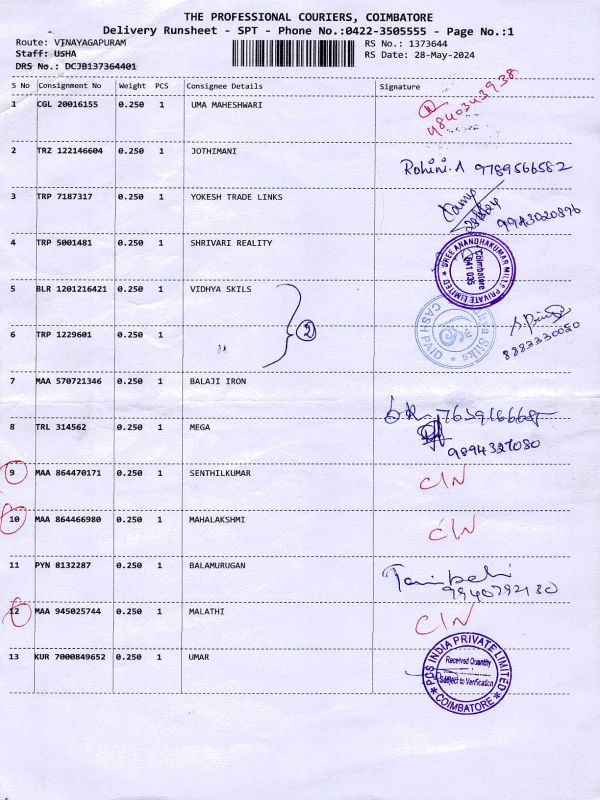 THE PROFESSIONAL COURIERS, COIMBATORE
Delivery Runsheet - SPT - Phone No.:0422-3505555 - Page No.:1
Route: VINAYAGAPURAM RS No.: 1373644
Staff: USHA RS Date: 28-May-2024
DRS No.: DCJB137364401
S No Consignment No Weight PCS Consignee Details Signature
1 CGL 20016155 0.250 1 UMA MAHESHWARI
2 TRZ 122146604 0.250 1 JOTHIMANI Rohini.A 9789566582
3 TRP 7187317 0.250 1 YOKESH TRADE LINKS 9943020896
4 TRP 5001481 0.250 1 SHRIVARI REALITY SREE ANANDHAKUMAR MILLS PRIVATE LIMITED Coimbatore 641 035
5 BLR 1201216421 0.250 1 VIDHYA SKILS
6 TRP 1229601 0.250 1 " 2 CASH PAID 8883330050
7 MAA 570721346 0.250 1 BALAJI IRON
8 TRL 314562 0.250 1 MEGA 9894327080
9 MAA 864470171 0.250 1 SENTHILKUMAR C/N
10 MAA 864466980 0.250 1 MAHALAKSHMI C/N
11 PYN 8132287 0.250 1 BALAMURUGAN 9940792130
12 MAA 945025744 0.250 1 MALATHI C/N
13 KUR 7000849652 0.250 1 UMAR PCS INDIA PRIVATE LIMITED Received Quantity Subject to Verification COIMBATORE